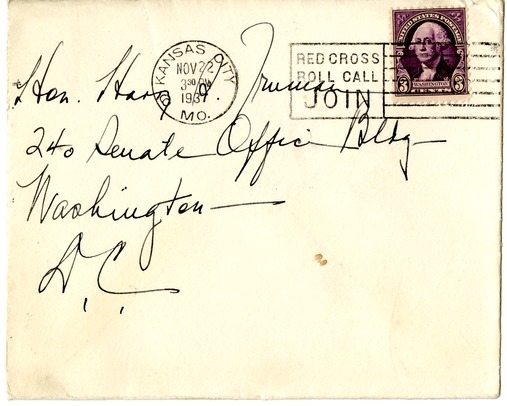 KANSAS CITY
NOV 22
3 30 PM
1937
MO.
RED CROSS
ROLL CALL
JOIN
UNITED STATES POSTAGE
3 WASHINGTON 3
CENTS
Hon. Harry S. Truman
240 Senate Office Bldg
Washington
D.C.